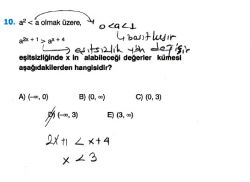 10. a² < a olmak üzere, → 0<a<1
↳ basitleşir
a²ˣ⁺¹ > aˣ⁺⁴ → eşitsizlik yön değişir
eşitsizliğinde x in alabileceği değerler kümesi
aşağıdakilerden hangisidir?
A) (-∞, 0) B) (0, ∞) C) (0, 3)
D) (-∞, 3) E) (3, ∞)
2x+1 < x+4
x < 3